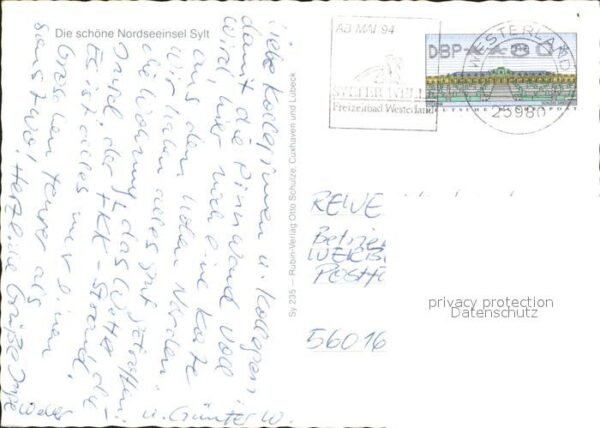 Die schöne Nordseeinsel Sylt
Liebe Kolleginnen u. Kollegen,
damit die Pinnwand voll
wird, hier noch eine Karte
aus dem hohen Norden.
Wir haben alles gut getroffen:
die Wohnung, das Wetter, die
Insel, der FKK-Strand.
Es ist alles nur einen
Groschen teurer als
sonstwo! Herzliche Grüße Inge
u. Günter W.
Sy 235 — Rubin-Verlag Otto Schulze, Cuxhaven und Lübeck
AB MAI 94
SYLTER WELLE
Freizeitbad Westerland
WESTERLAND
25980
DBP
DEUTSCHE BUNDESPOST
REWE
56016
privacy protection
Datenschutz